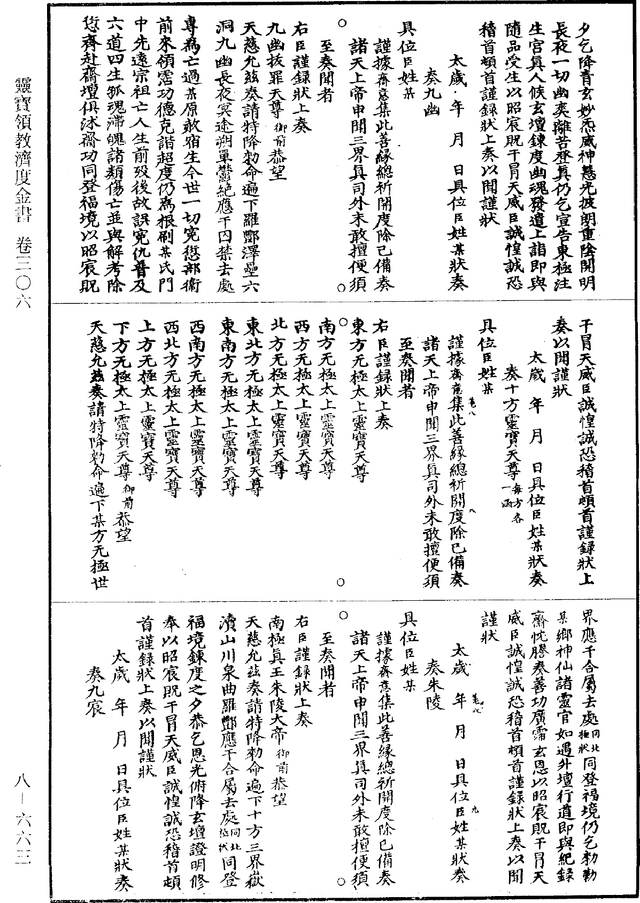 夕乞降青玄妙炁威神慧光披朗重陰開明
長夜一切幽爽離苦登真仍乞宣告東極注
生宫真人候玄壇鍊度幽魂發遣上詣即與
隨品受生以昭宸貺干冒天威臣誠惶誠恐
稽首頓首謹錄狀上奏以聞謹狀
太歲 年 月 日具位臣姓某狀奏
奏九幽
具位臣姓某
謹據齋意集此善緣總祈開度除已備奏
諸天上帝申聞三界真司外未敢擅便須
至奏聞者
右臣謹錄狀上奏
九幽拔罪天尊御前恭望
天慈允兹奏請特降勑命遍下羅酆澤壘六
洞九幽長夜冥途朔單鬱絶應干囚禁去處
專為亡過某原赦宿生今世一切寃愆部衛
前來領霑功德克諧超度仍為根刷某氏門
中先遠宗祖亡人生前殁後故誤寃仇普及
六道四生孤魂滯魄諸類傷亡並與解考除
愆齊赴齋壇俱沐齋功同登福境以昭宸貺
干冒天威臣誠惶誠恐稽首頓首謹錄狀上
奏以聞謹狀
太歲 年 月 日具位臣姓某狀奏
奏十方靈寶天尊每方各一函
具位臣姓某
謹據齋意集此善緣總祈開度除已備奏
諸天上帝申聞三界真司外未敢擅便須
至奏聞者
右臣謹錄狀上奏
東方无極太上靈寶天尊
南方无極太上靈寶天尊
西方无極太上靈寶天尊
北方无極太上靈寶天尊
東北方无極太上靈寶天尊
東南方无極太上靈寶天尊
西南方无極太上靈寶天尊
西北方无極太上靈寶天尊
上方无極太上靈寶天尊
下方无極太上靈寶天尊御前恭望
天慈允兹奏請特降勑命遍下某方无極世
界應干合屬去處同北極狀同登福境仍乞勑勒
某鄉神仙諸靈官如遇外壇行道即與紀錄
齋忱膠奏善功廣霈玄恩以昭宸貺干冒天
威臣誠惶誠恐稽首頓首謹錄狀上奏以聞
謹狀
太歲 年 月 日具位臣姓某狀奏
奏朱陵
具位臣姓某
謹據齋意集此善緣總祈開度除已備奏
諸天上帝申聞三界真司外未敢擅便須
至奏聞者
右臣謹錄狀上奏
南極真王朱陵大帝御前恭望
天慈允兹奏請特降勑命遍下十方三界嶽
瀆山川泉曲羅酆應干合屬去處同北極狀同登
福境鍊度之夕恭乞恩光俯降玄壇證明修
奉以昭宸貺干冒天威臣誠惶誠恐稽首頓
首謹錄狀上奏以聞謹狀
太歲 年 月 日具位臣姓某狀奏
奏九宸
靈寶領教濟度金書 卷三〇六
八–六六三